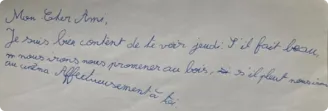 Mon Cher Ami,
Je suis bien content de te voir jeudi. S'il fait beau,
nous irons nous promener au bois, s'il pleut nous irons
au cinéma. Affectueusement à toi